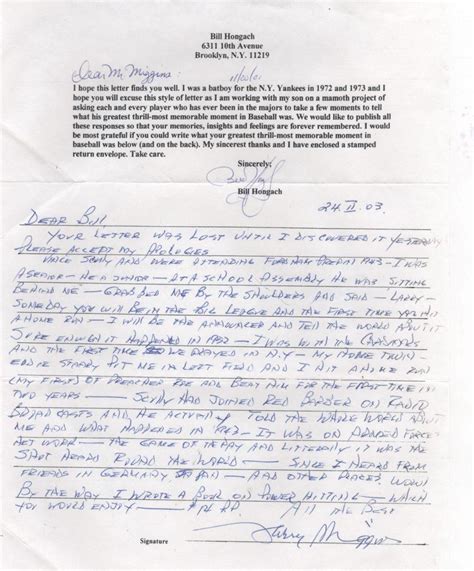 Bill Hongach
6311 10th Avenue
Brooklyn, N.Y. 11219
Dear Mr. Miggins
I hope this letter finds you well. I was a batboy for the N.Y. Yankees in 1972 and 1973 and I
hope you will excuse this style of letter as I am working with my son on a mamoth project of
asking each and every player who has ever been in the majors to take a few moments to tell
what his greatest thrill-most memorable moment in Baseball was. We would like to publish all
these responses so that your memories, insights and feelings are forever remembered. I would
be most grateful if you could write what your greatest thrill-most memorable moment in
baseball was below (and on the back). My sincerest thanks and I have enclosed a stamped
return envelope. Take care.
Sincerely,
Bill Hongach
24 II 03
Dear Bill
Your letter was lost until I discovered it yesterday
Please accept my apologies
Vince Scully and were attending Fordham Prep in 1943 - I was
a senior - he a junior - at a school assembly he was sitting
behind me - grabbed me by the shoulders and said - Larry -
someday you will be in the big league and the first time you hit
a home run - I will be the announcer and tell the world about it
Sure enough it happened in 1952 - I was with the Cardinals
and the first time we played in N.Y - my home town -
Eddie Stanky put me in left field and I hit a home run
(my first) off Preacher Roe and beat him for the first time in
two years - Scully had joined Red Barber on radio
broadcasts and he actually told the whole world about
me and what happened in 1943 - It was on Armed Forces
Net work - the game of the day and literally it was the
shot heard round the world - since I heard from
friends in Germany, Japan - and other places. Wow!
By the way I wrote a book on power hitting - which
you would enjoy - All the best
Signature Larry Miggins